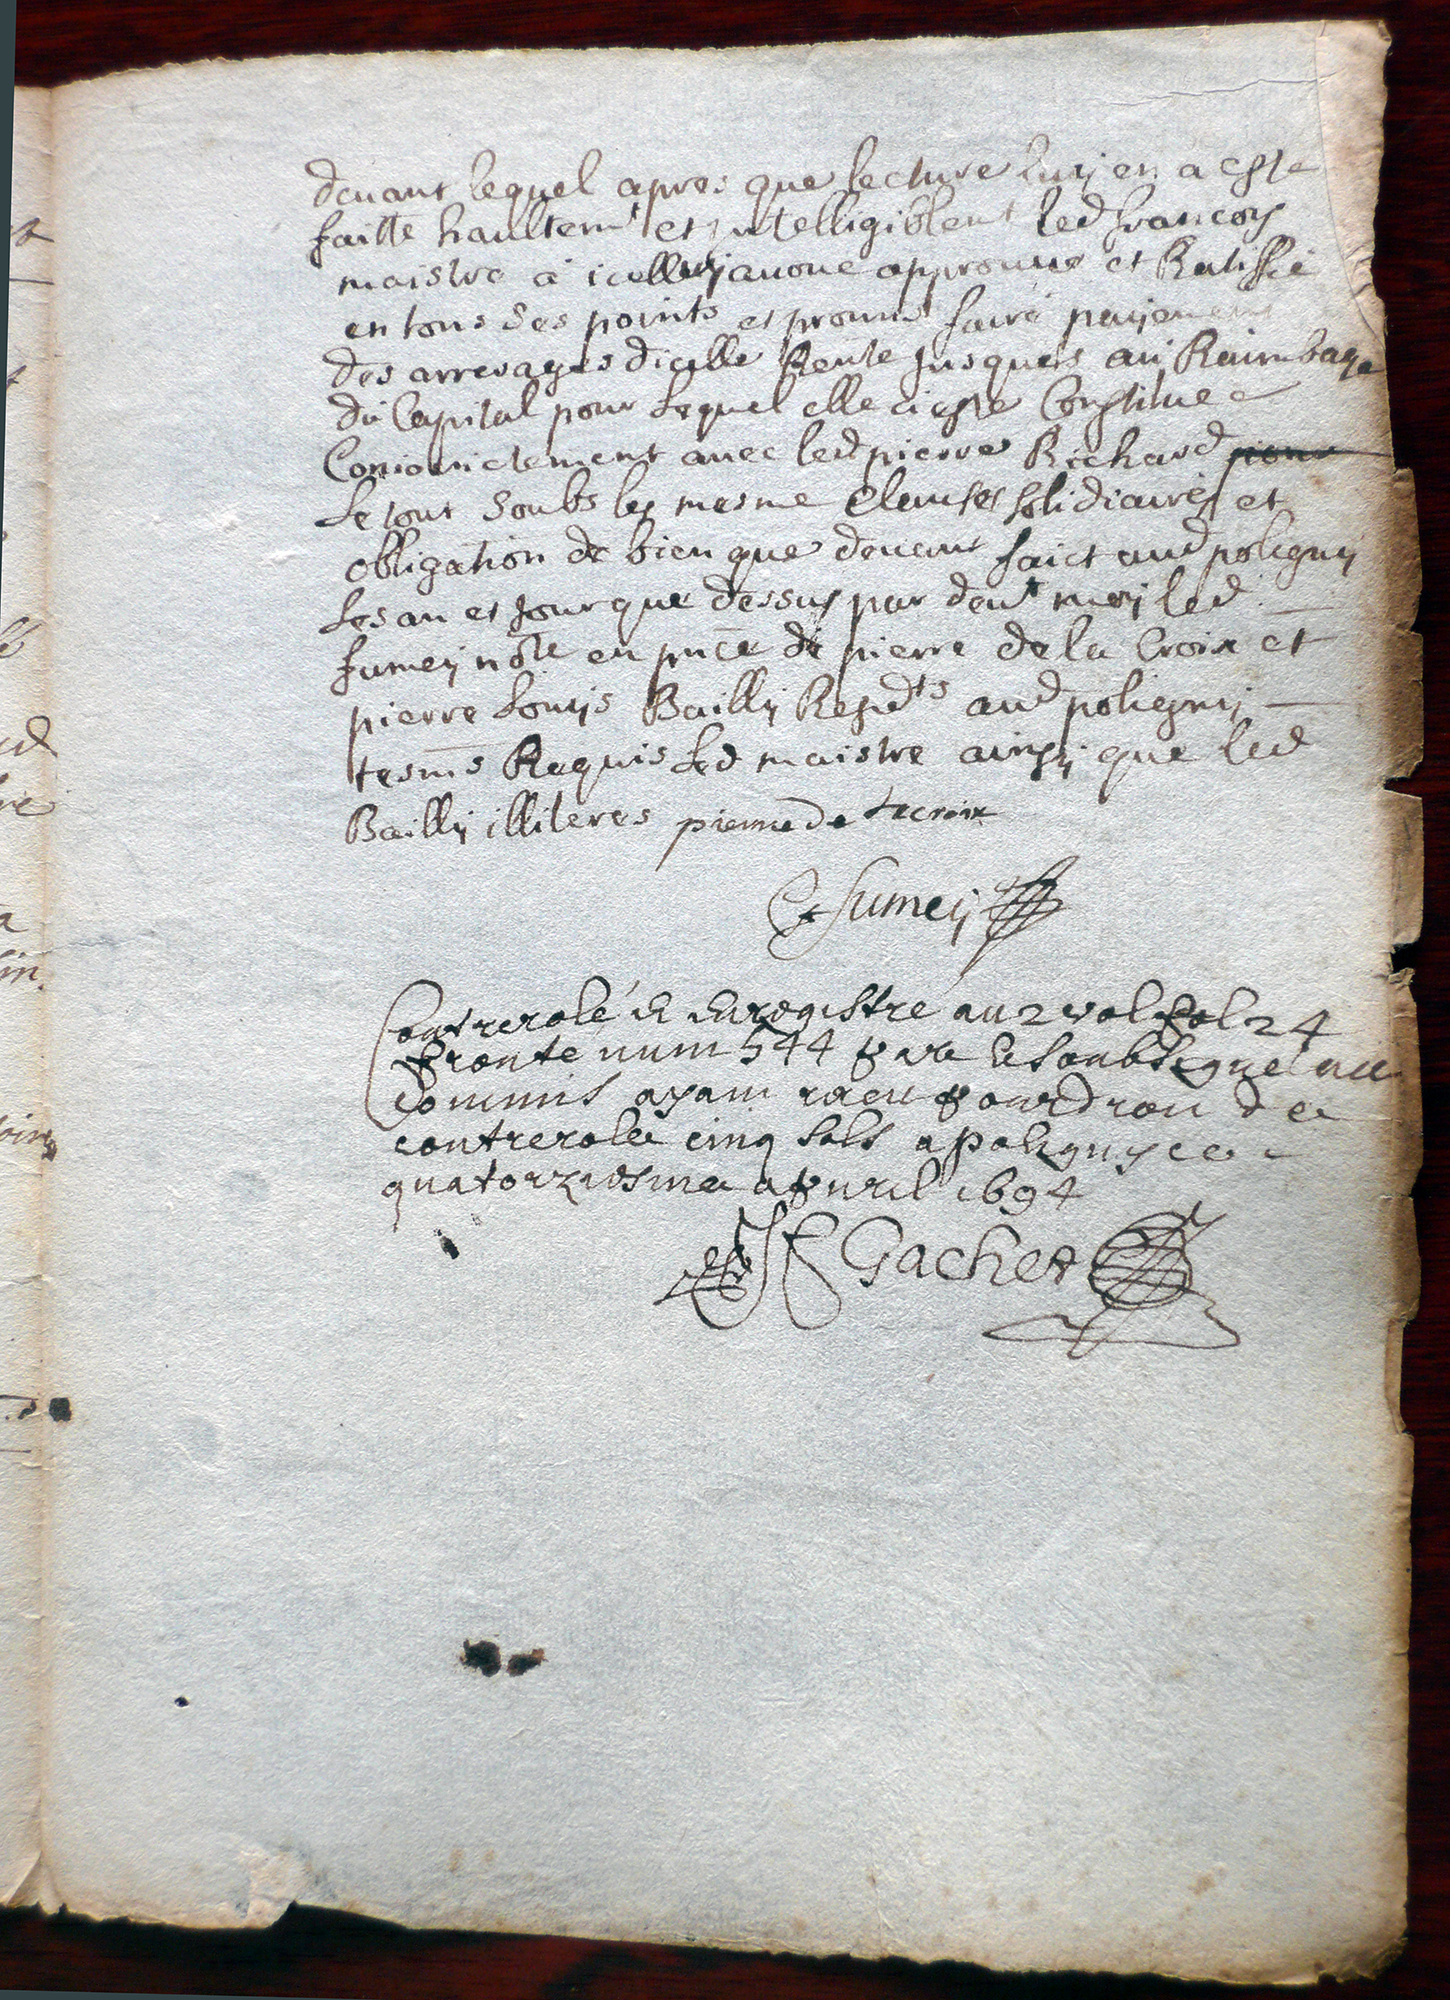 devant lequel apres que lecture luy en a este
faitte haultemt et intelligiblent led francoys
maistre à icelluy avoue approuvé et Ratiffié
en tous ses points et promis faire payement
des arrerages dicelle Rente jusques au Raimbage
du Capital pour lequel elle a este Constituee
Conioinctement avec led pierre Richard
le tout soubs les mesme Clauses solidiaires et
obligation de bien que devant faict aud poligny
les an et jour que dessus par devt moy led
fumey nore en pnce de pierre de la Croix et
pierre Louys Bailly Resdts aud poligny
tesms Requis led maistre ainsy que led
Bailly illiteres pierre de lacroix
fumey
Contrerolé et enregistré au 2 vol fol 24
num 544 par le soubsigné
Commis ayant receu pour droit de
contrerolle cinq sols a poligny ce
quatorziesme apvril 1694
Gachet